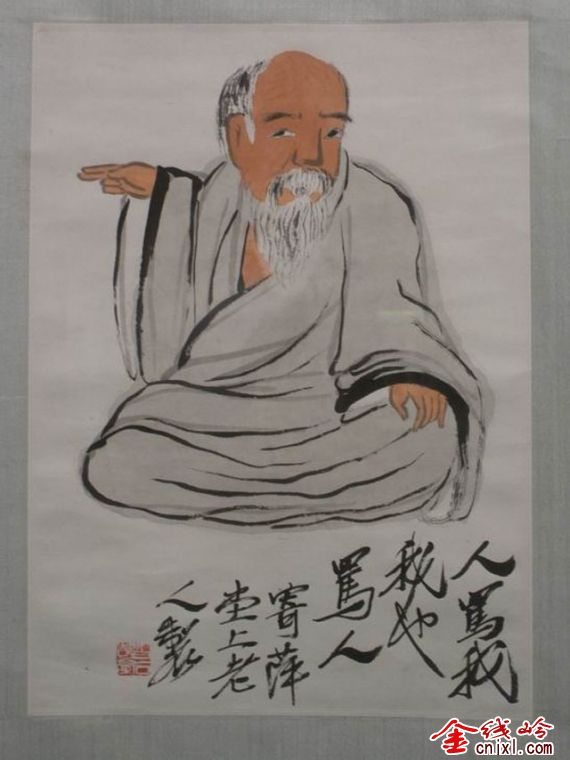 人罵我
我也
罵人
寄萍
堂上老
人製
金线岭
cnlxl.com